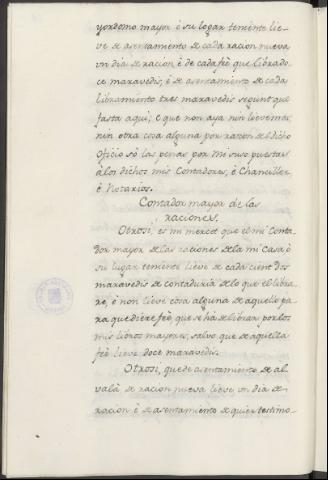 yordomo mayor è su logar teniente lie-
ve de asentamiento de cada racion nueva
un dia de racion, è de cada fèe que librado
ce maravedis, è de asentamiento de cada
libramiento tres maravedis segunt que
fasta aqui; è que non aya nin lieve mas
nin otra cosa alguna por razon del dicho
Oficio sò las penas por mi suso puestas
à los dichos mis Contadores, è Chanciller
è Notarios.
Contador mayor de las
raciones.
Otrosi, es mi merced que el mi Conta-
dor mayor de las raciones de la mi Casa è
su lugar teniente lieve de cada cient dos
maravedis de contaduria de lo que el libra-
re, è non lieve cosa alguna de aquello pa-
ra que diere fèe, que se hà de librar por los
mis libros mayores, salvo que de aquella
fèe lieve doce maravedis.
Otrosi, que de asentamiento de al-
valà de racion nueva lieve un dia de
racion è de asentamiento de quier testimo-